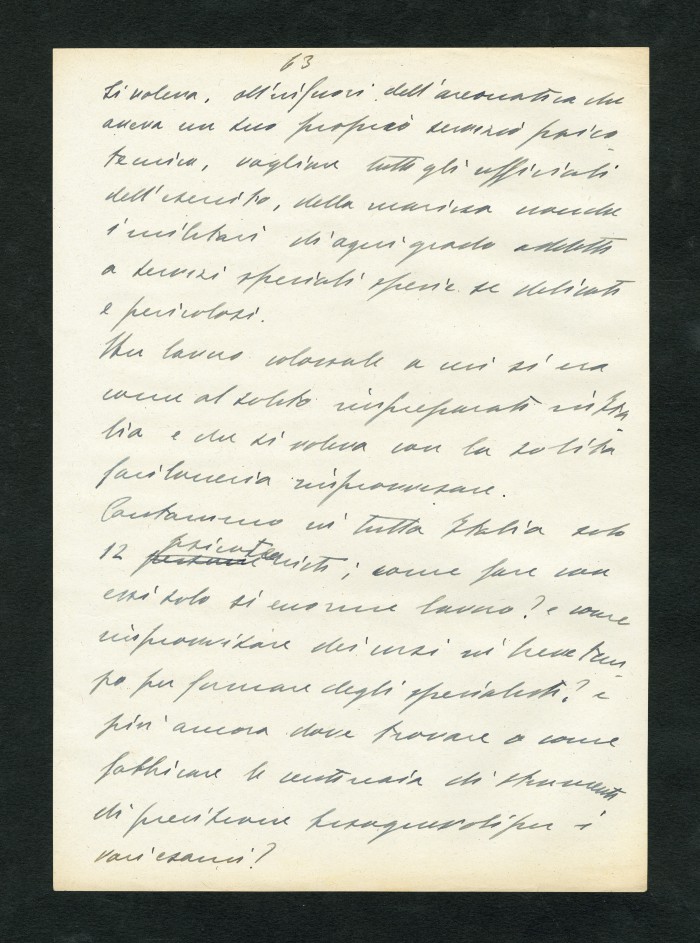 63
Si voleva, all'infuori dell'areonatica che
aveva un suo proprio servizio psico
tecnico, vagliare tutti gli ufficiali
dell'esercito, della marina nonche
i militari di ogni grado addetti
a servizi speciali specie se delicati
e pericolosi.
Un lavoro colossale a cui si era
come al solito impreparati in Ita
lia e che si voleva con la solita
faciloneria improvvisare.
Contavamo in tutta Italia solo
12 psicotecnisti; come fare con
essi solo si enorme lavoro? e come
improvvisare dei corsi in breve tem
po per formare degli specialisti? e
più ancora dove trovare o come
fabbricare le centinaia di strumenti
di precisione bisognevoli per i
vari esami?